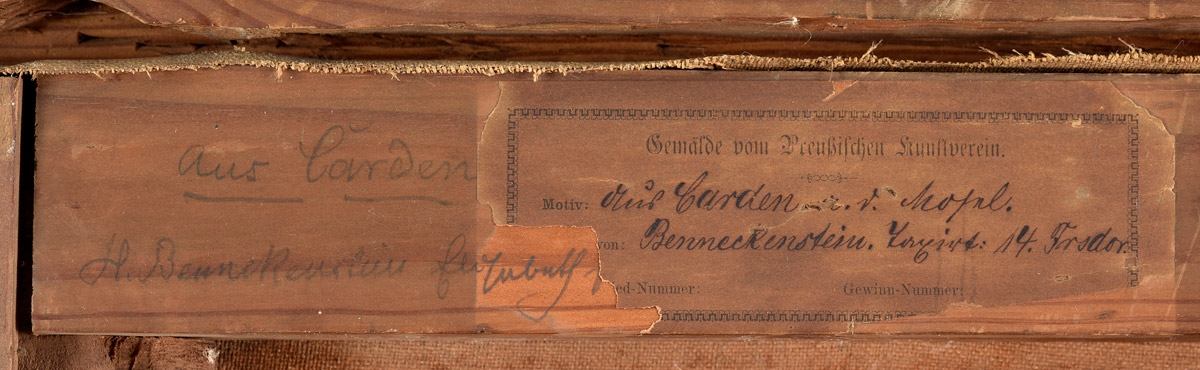 aus Carden
H. Benneckenstein
Gemälde vom Preußischen Kunstverein.
Motiv: Aus Carden a. d. Mosel.
von: Benneckenstein. Taxirt: 14. Frsdor.
ed-Nummer: Gewinn-Nummer: